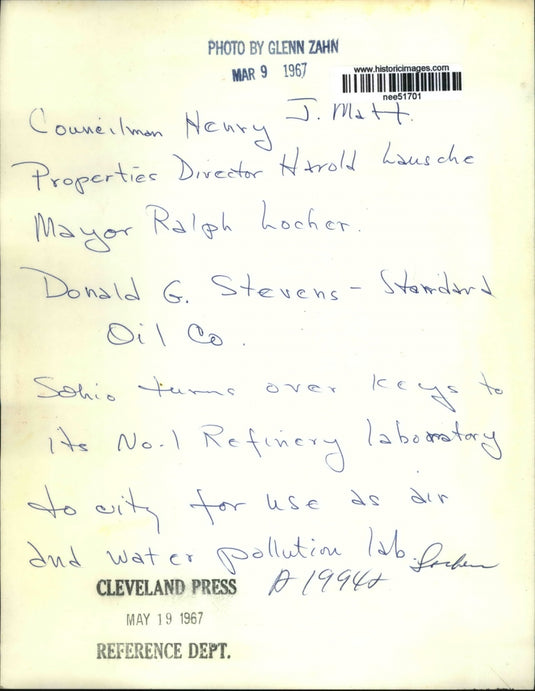 PHOTO BY GLENN ZAHN
MAR 9 1967
www.historicimages.com
nee51701
Councilman Henry J. Matt.
Properties Director Harold Lausche
Mayor Ralph Locher.
Donald G. Stevens - Standard
Oil Co.
Sohio turns over keys to
its No.1 Refinery laboratory
to city for use as air
and water pollution lab.
Locher
CLEVELAND PRESS
MAY 19 1967
REFERENCE DEPT.